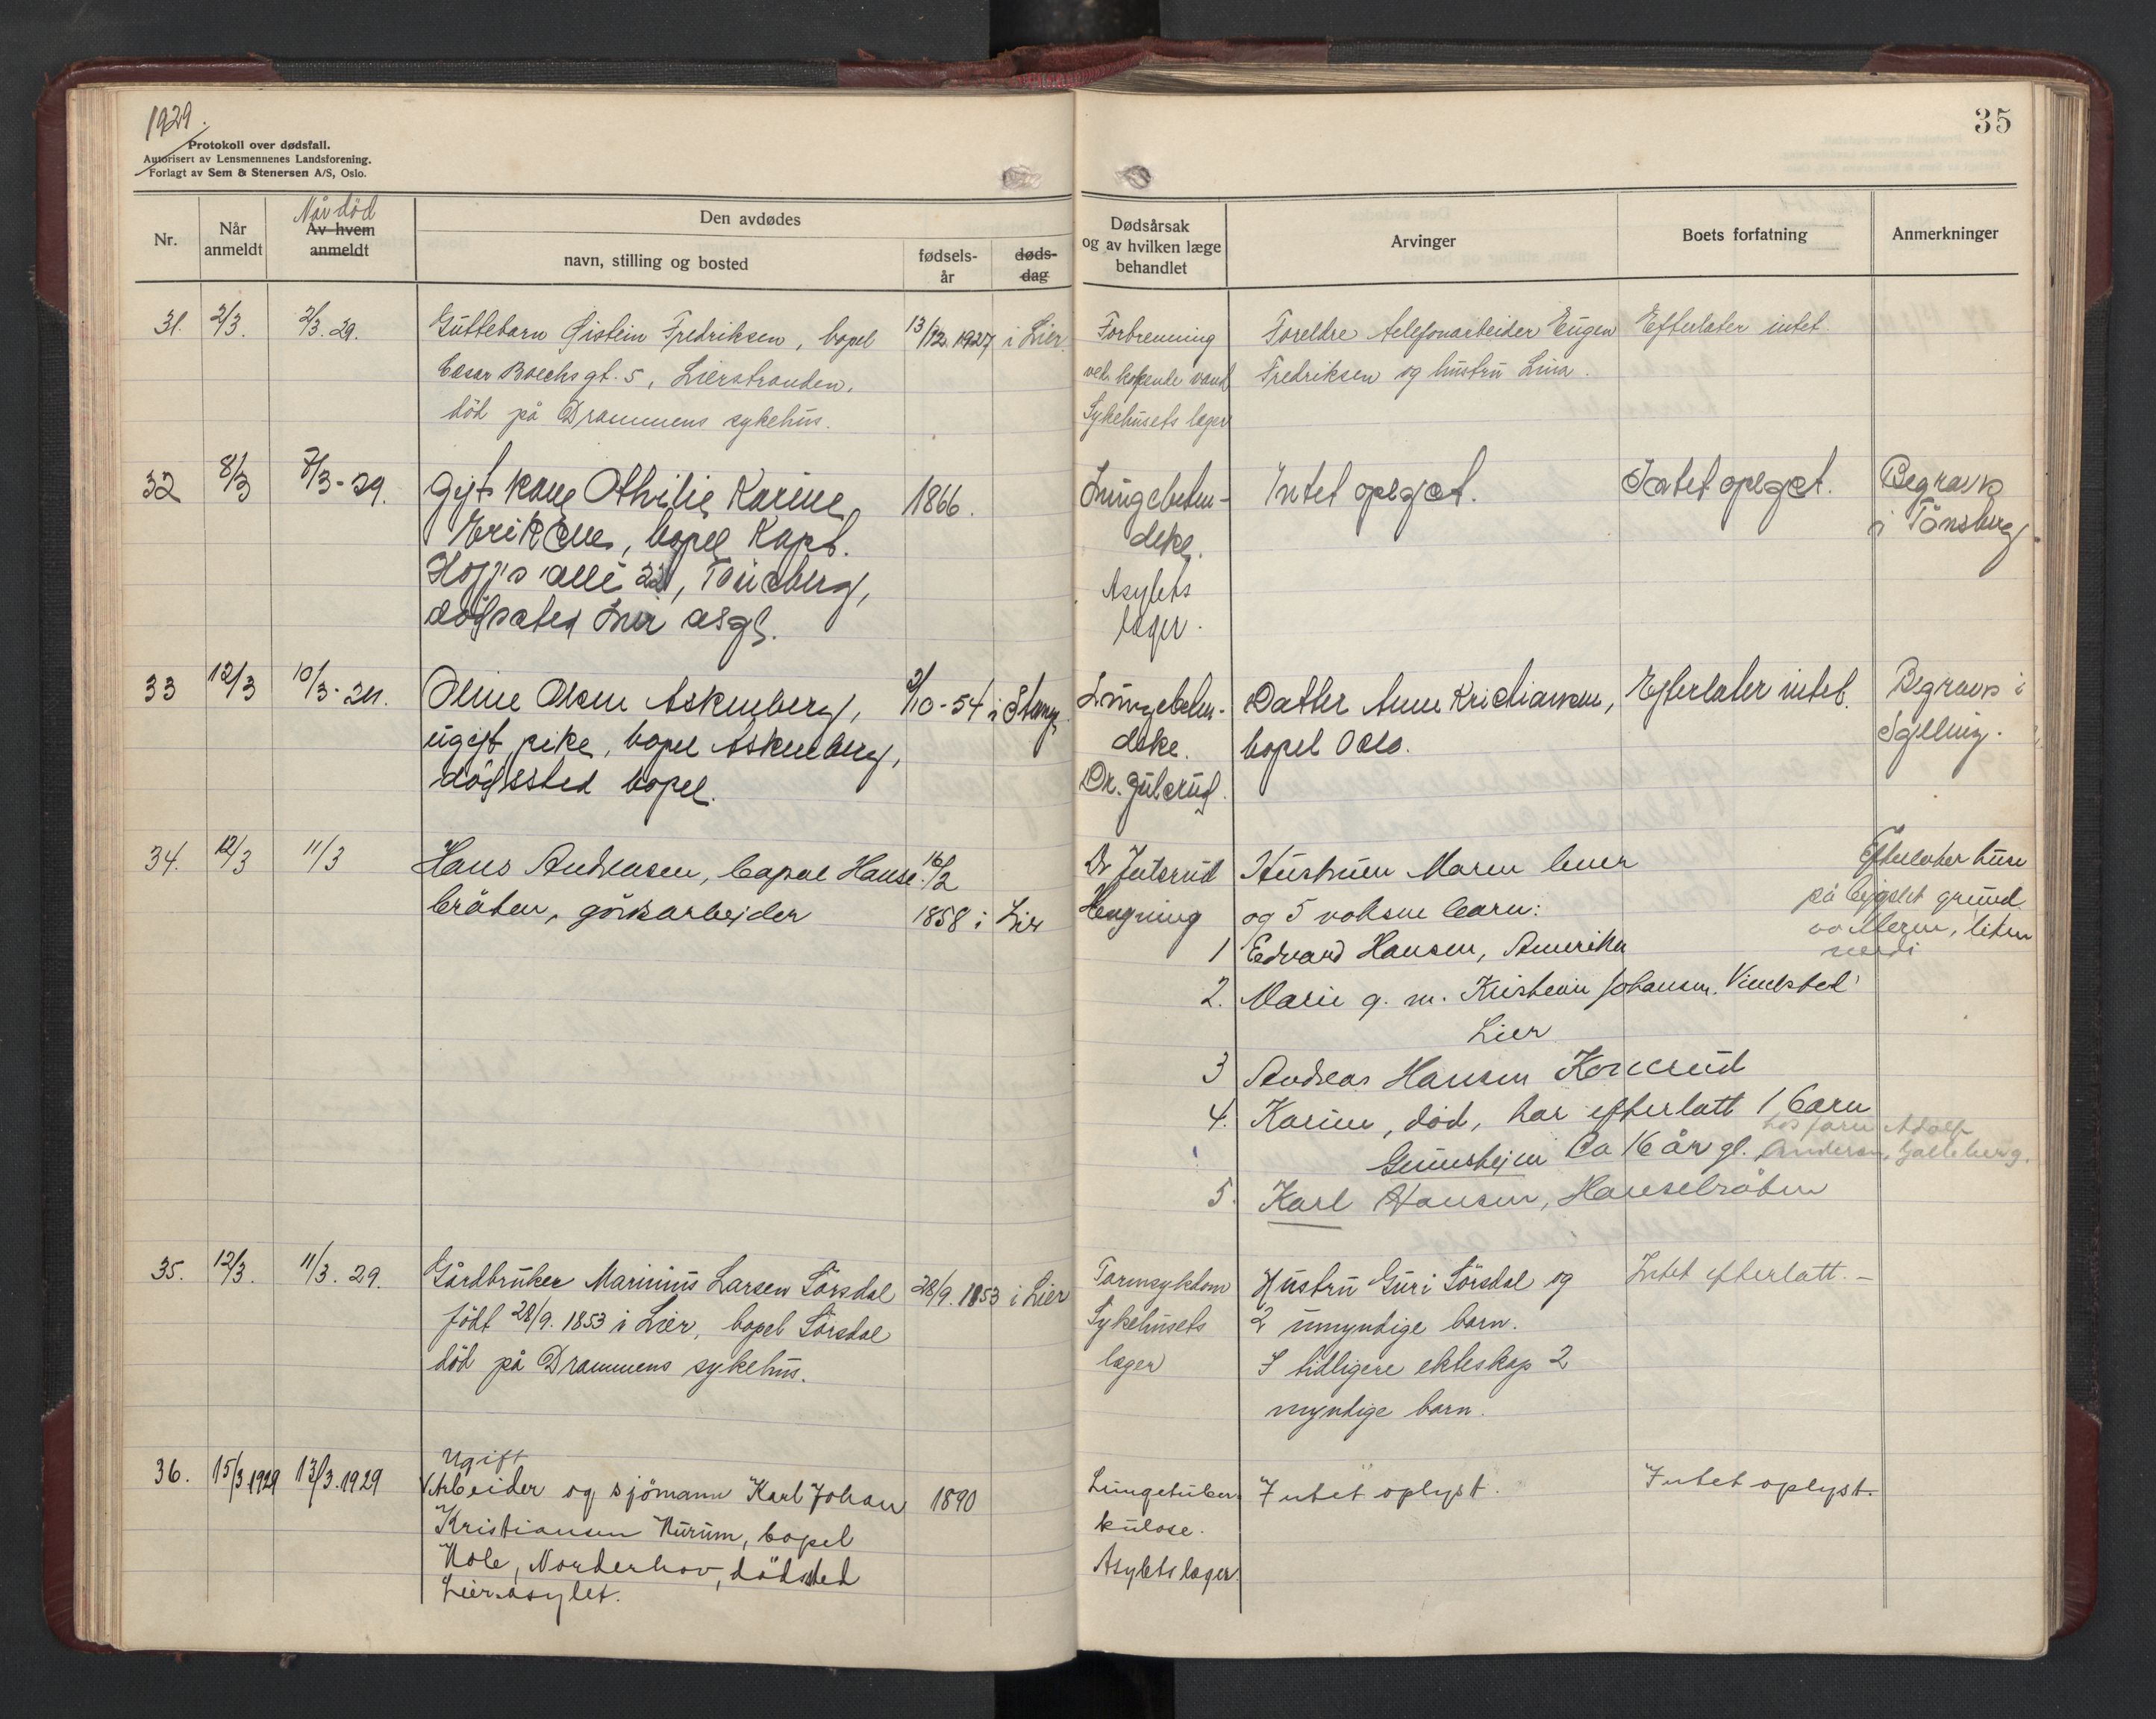 1929.
Protokoll over dødsfall.
Autorisert av Lensmennenes Landsforening.
Forlagt av Sem & Stenersen A/S, Oslo.
35
Nr.
Når anmeldt
Når død
Av hvem anmeldt
Den avdødes
navn, stilling og bosted
fødsels-år
døds-dag
Dødsårsak og av hvilken læge behandlet
Arvinger
Boets forfatning
Anmerkninger
31. 2/3. 2/3. 29. Guttebarn Øistein Fredriksen, bopel 13/12. 1927 i Lier.
Cæsar Boechsgt. 5, Lierstranden,
död på Drammens sykehus.
Forbrenning
ved kokende vand
Sykehusets læger
Foreldre telefonarbeider Eugen
Fredriksen og hustru Lina.
Efterlater intet.
32 8/3 7/3-29. Gift kone Othilie Karine 1866.
Eriksen, bopel Kapt.
Hoff's alle, Tönsberg,
dödssted Lier asyl.
Lungebeten-
delse.
Asylets
læger.
Intet oplyst.
Intet oplyst.
Begraves
i Tönsberg.
33 12/3 10/3-29. Oline Olsen Askenberg, 2/10-54 i Stange.
ugift pike, bopel Askenberg,
dödssted bopel.
Lungebeten-
delse.
Dr. Gulsrud.
Datter Anne Kristiansen,
bopel Oslo.
Efterlater intet.
Begraves i
Sylling.
34. 12/3 11/3 Hans Andreasen, bopæl Hanse- 16/2
bråten, gårdsarbejder 1858 i Lier
Dr Julsrud
Hengning
Hustruen Maren lever
og 5 voksne barn:
1 Edvard Hansen, Amerika
2. Marie g. m. Kristian Johansen. Vinlsted
Lier
3 Andreas Hansen Korsrud
4. Karine, död, har efterlatt 1 barn
Gunnhejm Ca 16 år gl. hos faren Adolf
Anderen, Galleberg.
5. Karl Hansen, Hansebråten
Efterlater huse
på bygslet grund
liten
verdi
35. 12/3. 11/3. 29. Gårdbruker Marinius Larsen Sörsdal 28/9. 1853 i Lier
födt 28/9. 1853 i Lier, bopel Sörsdal
död på Drammens sykehus.
Tarmsykdom
Sykehusets
læger
Hustru Guri Sörsdal og
2 umyndige barn.
I tidligere ekteskap 2
myndige barn.
Intet efterlatt. —
36. 15/3 1929 13/3. 1929 Ugift
Arbeider og sjömann Karl Johan 1890
Kristiansen Hurum, bopel
Hole, Norderhov, dödssted
Lier asylet.
Lungetuber-
kulose.
Asylets læger.
Intet oplyst.
Intet oplyst.